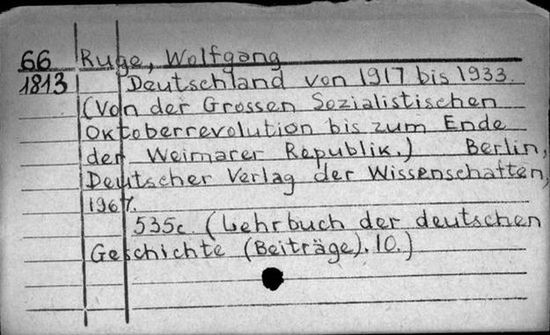 66 Ruge, Wolfgang
1813 Deutschland von 1917 bis 1933.
(Von der Grossen Sozialistischen
Oktoberrevolution bis zum Ende
der Weimarer Republik.) Berlin,
Deutscher Verlag der Wissenschaften,
1967.
535c. (Lehrbuch der deutschen
Geschichte (Beiträge), 10.)